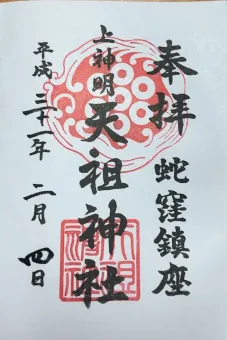 奉拝
蛇窪鎮座
上神明
天祖神社
平成三十一年二月四日